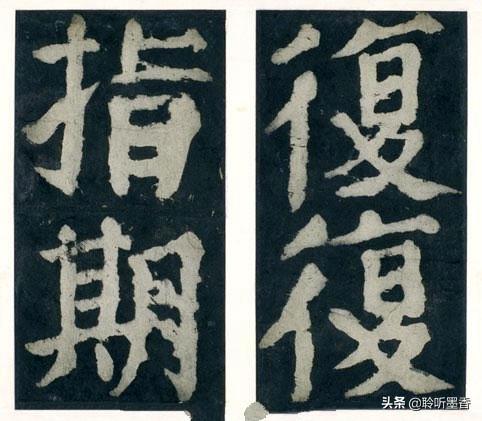 復復
指期
头条 @聆听墨香